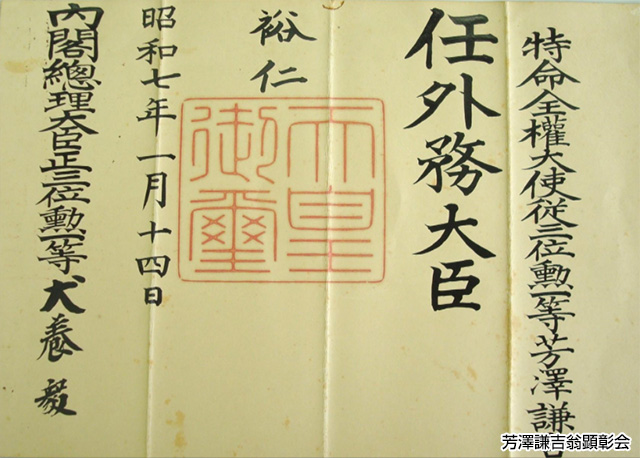 特命全權大使從三位勲一等芳澤謙吉
任外務大臣
裕仁
天皇御璽
昭和七年一月十四日
内閣總理大臣正三位勲一等犬養毅
芳澤謙吉翁顕彰会